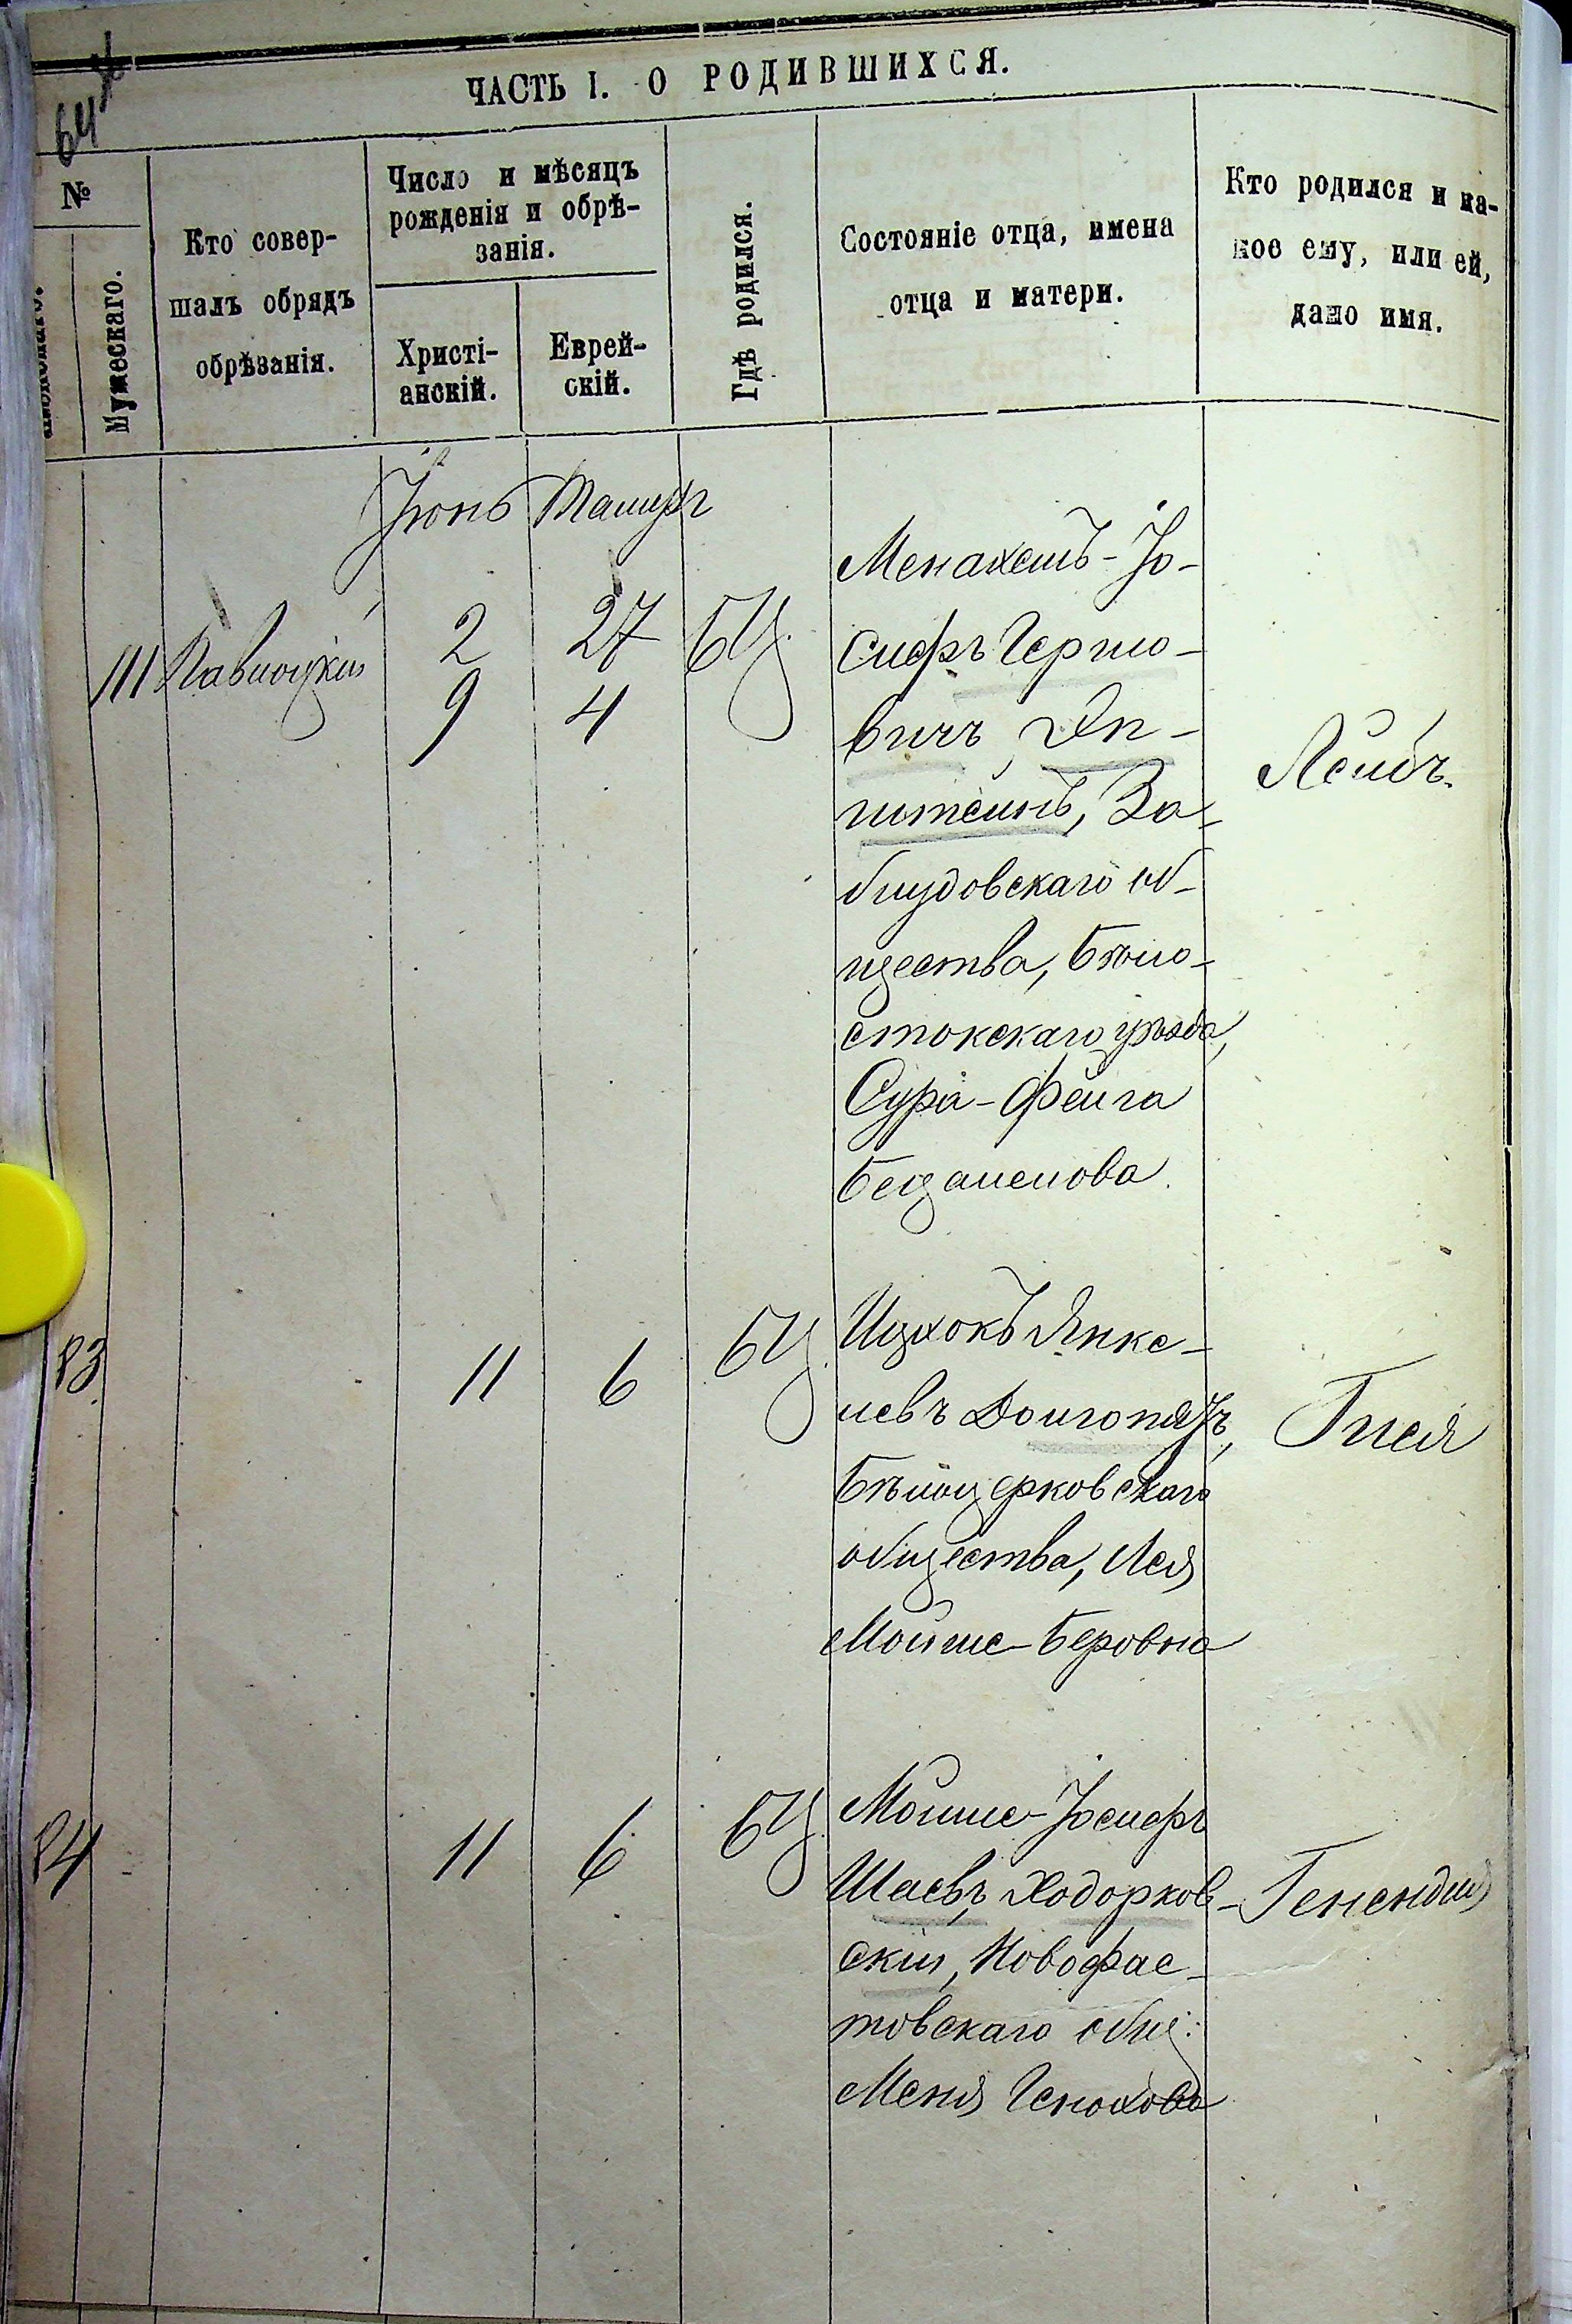 64
ЧАСТЬ I. О РОДИВШИХСЯ.
№
Мужескаго.
Кто совер-
шалъ обрядъ
обрѣзанія.
Число и мѣсяцъ
рожденія и обрѣ-
занія.
Христі-
анскій.
Еврей-
скій.
Гдѣ родился.
Состояніе отца, имена
отца и матери.
Кто родился и ка-
кое ему, или ей,
дано имя.
Іюнь
111
2
27
БЦ
9
4
Менахемъ-Іо-
сифъ Гершо-
вичъ Эп-
штейнъ, За-
блудовскаго об-
щества, Бѣло-
стокскаго уѣзда,
Сура-Фейга
Бецалелова.
Лейбъ.
83
11
6
БЦ
Ицхокъ Янке-
левъ Долгопятъ,
Бѣлоцерковскаго
общества, Лея
Мойше-Беровна
Гися
84
11
6
БЦ
Мойше-Іосифъ
Шаевъ Ходорков-
скій, Новофас-
товскаго общ:
Меня Генохова
Генендля